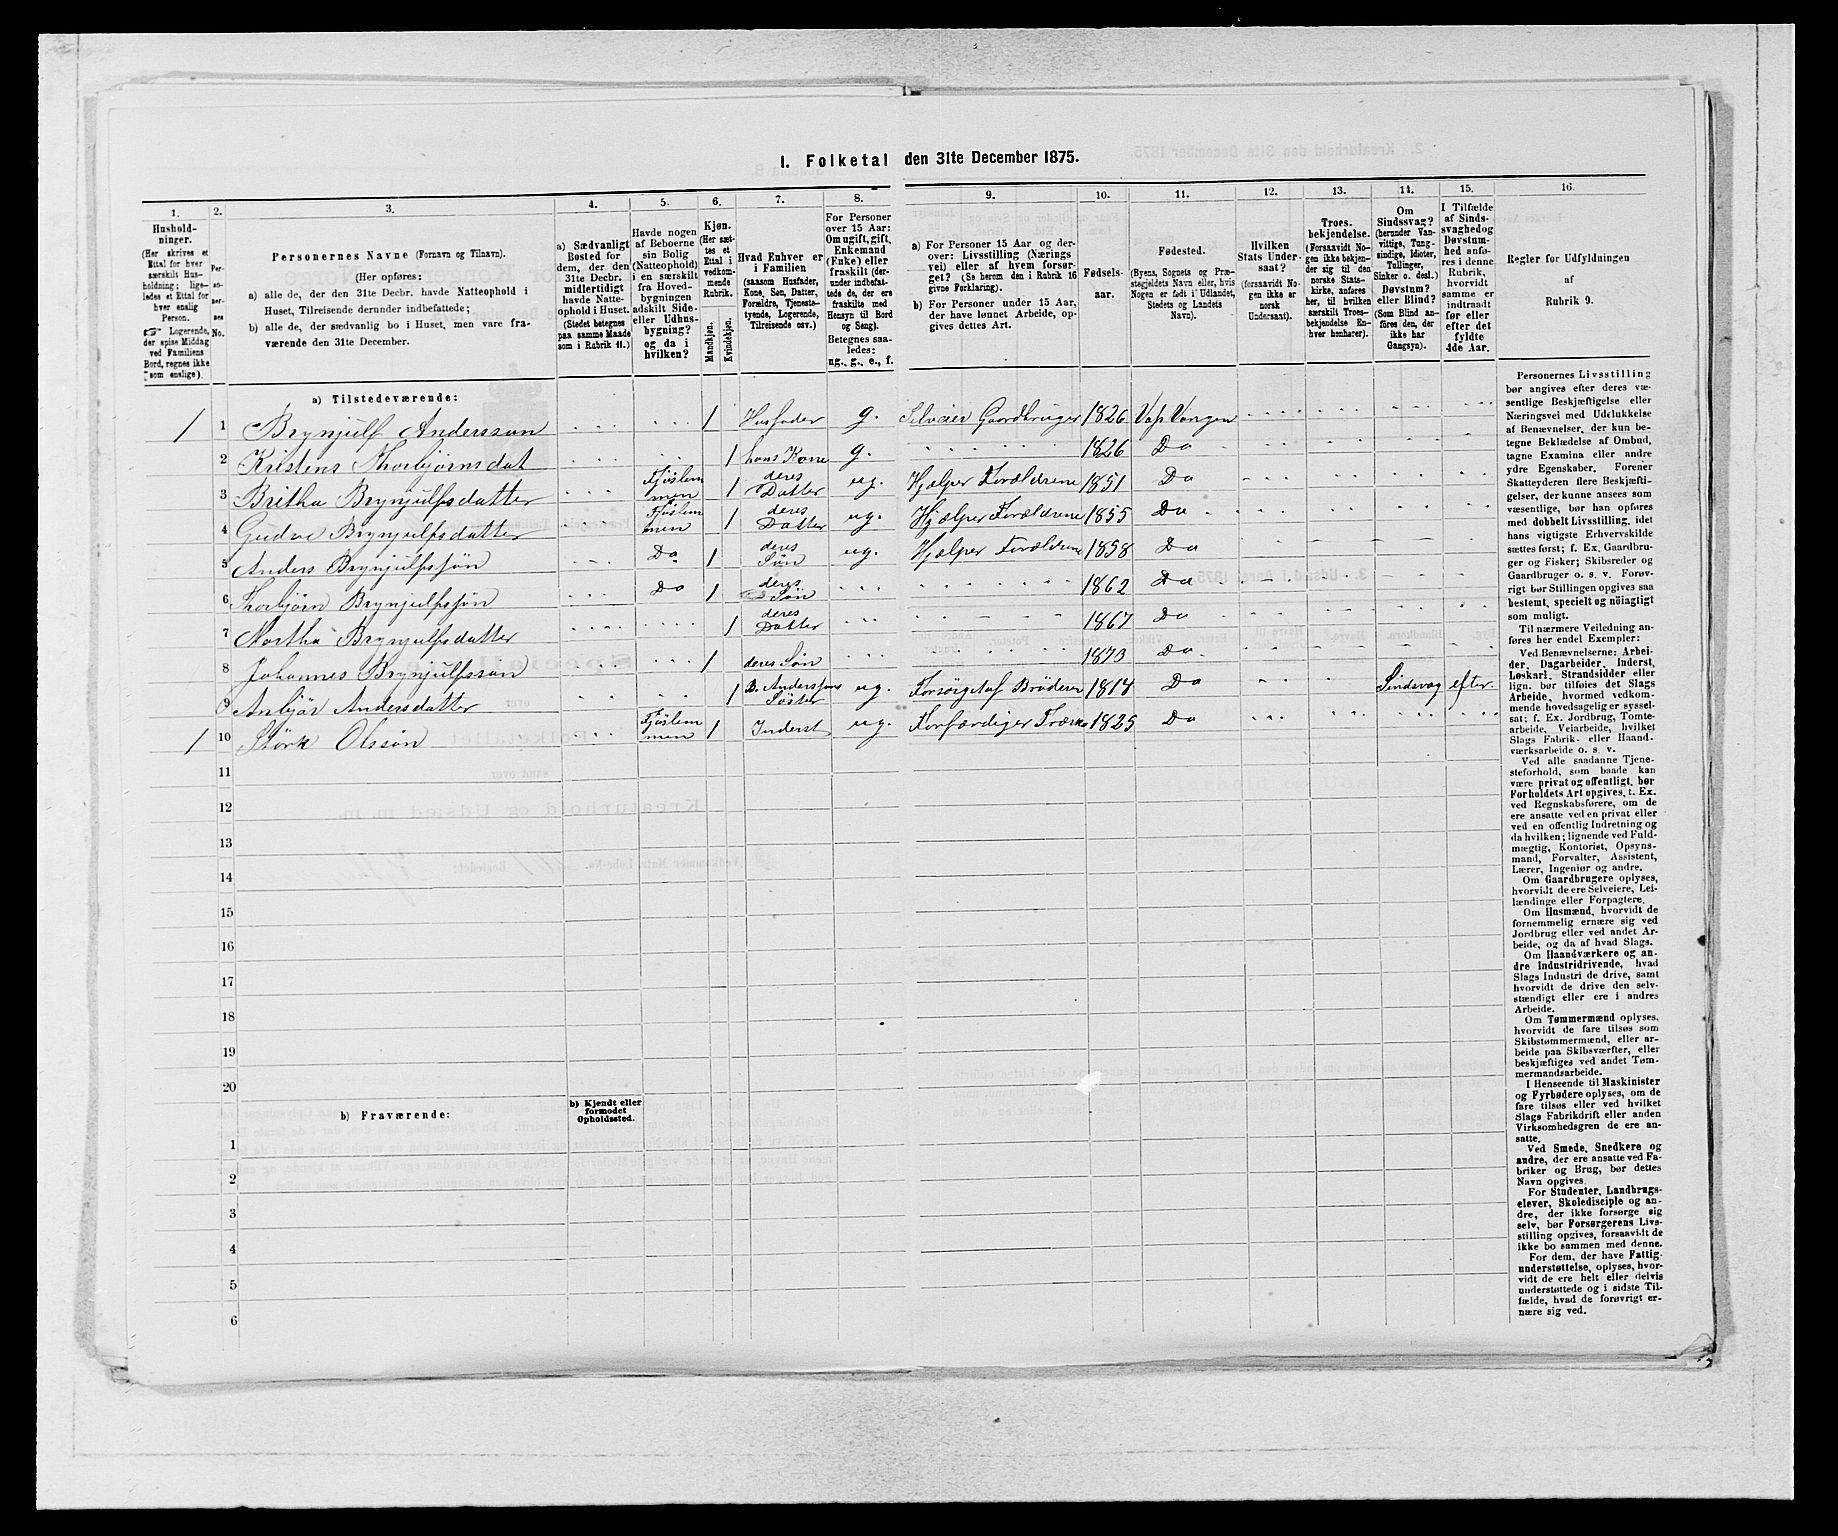 I. Folketal den 31te December 1875.
1. 2. 3. 4. 5. 6. 7. 8. 9. 10. 11. 12. 13. 14. 15. 16.
Hushold-
ninger.
(Her skrives et
Ettal for hver
særskilt Hus-
holdning; lige-
ledes et Ettal for
hver enslig
Person.
☞ Logerende,
der spise Middag
ved Familiens
Bord, regnes ikke
som enslige).
Per-
so-
ner-
nes
No.
Personernes Navne (Fornavn og Tilnavn).
(Her opføres:
a) alle de, der den 31te Decbr. havde Natteophold i
Huset, Tilreisende derunder indbefattede;
b) alle de, der sædvanlig bo i Huset, men vare fra-
værende den 31te December.
a) Sædvanligt
Bosted for
dem, der den
31te Decbr.
midlertidigt
havde Natte-
ophold i Huset.
(Stedet betegnes
paa samme Maade
som i Rubrik 11.)
Havde nogen
af Beboerne
sin Bolig
(Natteophold)
i en særskilt
fra Hoved-
bygningen
adskilt Side-
eller Udhus-
bygning?
og da i
hvilken?
Kjøn.
(Her sæt-
tes et
Ettal i
vedkom-
mende
Rubrik.
Mandkjøn.
Kvindekjøn.
Hvad Enhver er
i Familien
(saasom Husfader,
Kone, Søn, Datter,
Forældre, Tjeneste-
tyende, Logerende,
Tilreisende osv.)
For Personer
over 15 Aar:
Om ugift, gift,
Enkemand
(Enke) eller
fraskilt (der-
under indbefat-
tede de, der ere
fraskilte med
Hensyn til Bord
og Seng).
Betegnes saa-
ledes:
ug., g., e., f.
a) For Personer 15 Aar og der-
over: Livsstilling (Nærings
vei) eller af hvem forsør-
get? (Se herom den i Rubrik 16
givne Forklaring).
b) For Personer under 15 Aar,
der have lønnet Arbeide, op-
gives dettes Art.
Fødsels-
aar.
Fødested.
(Byens, Sognets og Præ-
stegjeldets Navn eller, hvis
Nogen er født i Udlandet,
Stedets og Landets
Navn).
Hvilken
Stats Under-
saat?
(forsaavidt No-
gen ikke er
norsk
Undersaat).
Troes-
bekjendelse.
(Forsaavidt No-
gen ikke bekjen-
der sig til den
norske Stats-
kirke, anføres
her, til hvilken
særskilt Troes-
bekjendelse En-
hver henhører).
Om
Sindssvag?
(herunder Van-
vittige, Tung-
sindige, Idioter,
Tullinger,
Sinker o. desl.)
Døvstum?
eller Blind?
(Som Blind an-
føres den, der
ikke har
Gangsyn).
I Tilfælde
af Sinds-
svaghed og
Døvstum-
hed anfø-
res i denne
Rubrik,
hvorvidt
samme er
indtraadt
før eller
efter det
fyldte
4de Aar.
Regler for Udfyldningen
af
Rubrik 9.
a) Tilstedeværende:
1 1 Brynjulf Anderssøn 1 Husfader g. Selveier Gaardbruger 1826 Vos Vangen
2 Kristens Thorbjørnsdat 1 hans Kone g. 1826 Do
3 Britha Brynjulfsdatter Fjøslem men 1 deres Datter ug. Hjælper Forældrene 1851 Do
4 Gudve Brynjulfsdatter Fjøslem men 1 deres Datter ug. Hjælper Forældrene 1855 Do
5 Anders Brynjulfssøn Do 1 deres Søn ug. Hjælper Forældrene 1858 Do
6 Thorbjørn Brynjulfssøn Do 1 deres Søn 1862 Do
7 Martha Brynjulfsdatter 1 deres Datter 1867 Do
8 Johannes Brynjulfssøn 1 deres Søn 1873 Do
9 Anbjør Andersdatter 1 B. Anderssøns Søster ug. Forsørget af Brøderen 1814 Do Sindssvag efter.
1 10 Størk Olssøn Fjøslem men 1 Inderst ug. Forfærdiger 1825 Do
11
12
13
14
15
16
17
18
19
20
b) Fraværende:
b) Kjendt eller
formodet
Opholdssted.
1
2
3
4
5
6
Personernes Livsstilling
bør angives efter deres væ-
sentlige Beskjæftigelse eller
Næringsvei med Udelukkelse
af Benævnelser, der kun be-
tegne Beklædelse af Ombud,
tagne Examina eller andre
ydre Egenskaber. Forener
Skatteyderen flere Beskjæfti-
gelser, der kunne ansees som
væsentlige, bør han opføres
med dobbelt Livsstilling, idet
hans vigtigste Erhvervskilde
sættes først; f. Ex. Gaardbru-
ger og Fisker; Skibsreder og
Gaardbruger o. s. v. Forøv-
rigt bør Stillingen opgives saa
bestemt, specielt og nøiagtigt
som muligt.
Til nærmere Veiledning an-
føres her endel Exempler:
Ved Benævnelserne: Arbei-
der, Dagarbeider, Inderst,
Løskarl, Strandsidder eller
lign. bør tilføies det Slags
Arbeide, hvormed vedkom-
mende hovedsagelig er syssel-
sat; f. Ex. Jordbrug, Tomte-
arbeide, Veiarbeide, hvilket
Slags Fabrik- eller Haand-
værksarbeide o. s. v.
Ved alle saadanne Tjene-
steforhold, som baade kan
være privat og offentligt, bør
Forholdets Art opgives, t. Ex.
ved Regnskabsførere, om de
ere ansatte ved en privat eller
ved en offentlig Indretning og
da hvilken; lignende ved Fuld-
mægtig, Kontorist, Opsyns-
mand, Forvalter, Assistent,
Lærer, Ingeniør og andre.
Om Gaardbrugere oplyses,
hvorvidt de ere Selveiere, Lei-
lændinge eller Forpagtere.
Om Husmænd, hvorvidt de
fornemmelig ernære sig ved
Jordbrug eller ved andet Ar-
beide, og da af hvad Slags.
Om Haandværkere og an-
dre Industridrivende, hvad
Slags Industri de drive, samt
hvorvidt de drive den selv-
stændigt eller ere i andres
Arbeide.
Om Tømmermænd oplyses,
hvorvidt de fare tilsøs som
Skibstømmermænd, eller ar-
beide paa Skibsværfter, eller
beskjæftiges ved andet Tøm-
mermandsarbeide.
I Henseende til Maskinister
og Fyrbødere oplyses, om de
fare tilsøs eller ved hvilket
Slags Fabrikdrift eller anden
Virksomhedsgren de ere an-
satte.
Ved Smede, Snedkere og
andre, der ere ansatte ved Fa-
briker og Brug, bør dettes
Navn opgives.
For Studenter, Landbrugs-
elever, Skoledisciple og an-
dre, der ikke forsørge sig
selv, bør Forsørgerens Livs-
stilling opgives, forsaavidt de
ikke bo sammen med denne.
For dem, der have Fattig-
understøttelse, oplyses, hvor-
vidt de ere helt eller delvis
understøttede og i sidste Til-
fælde, hvad de forøvrigt er-
nære sig ved.